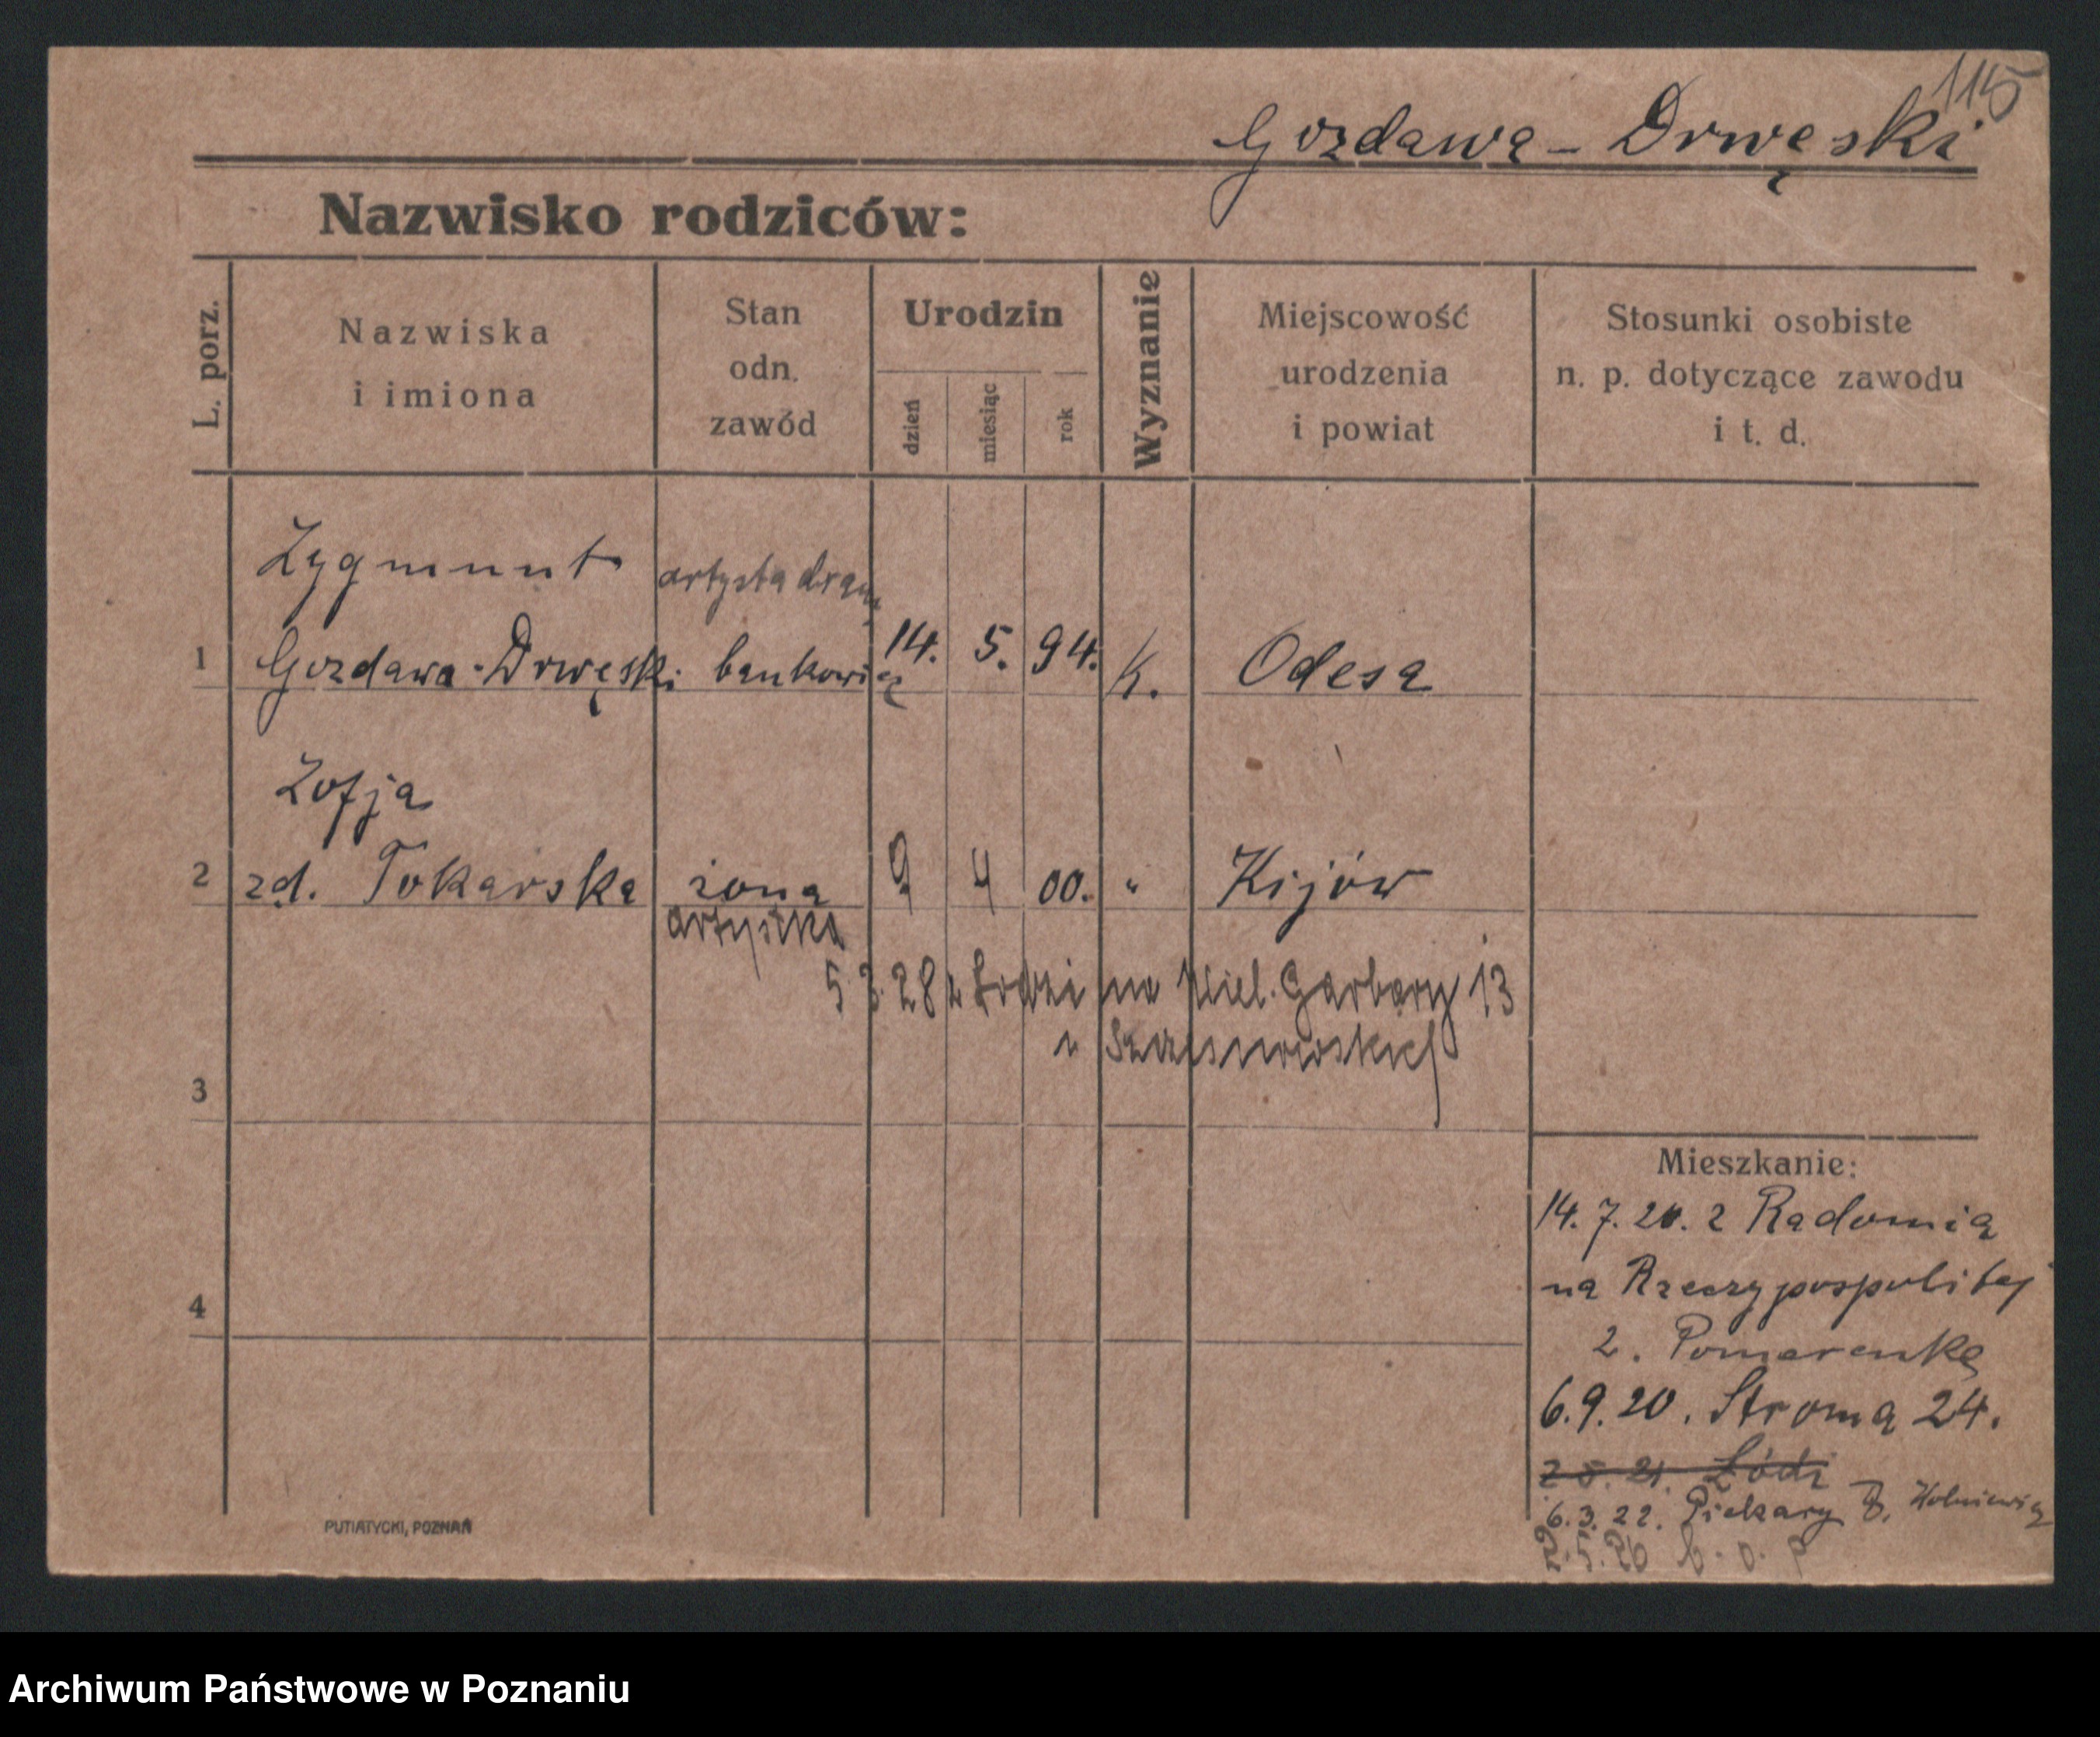 115
Gozdawa-Drwęski
Nazwisko rodziców:
L. porz.
Nazwiska
i imiona
Stan
odn.
zawód
Urodzin
dzień
miesiąc
rok
Wyznanie
Miejscowość
urodzenia
i powiat
Stosunki osobiste
n. p. dotyczące zawodu
i t. d.
Zygmunt artysta dram
1 Gozdawa-Drwęski bankowiec 14. 5. 94. k. Odesa
Zofja
2 zd. Tokarska żona 9 4 00. " Kijów
artystka
5.3.28 z Łodzi na Wiel. Garbary 13
u
3
4
Mieszkanie:
14. 7. 20. z Radomia
na Rzeczypospolitej
2. Pomarenke
6.9.20. Stroma 24.
2 5. 21. Łódź
6.3.22. Piekary
5. 26 b. o. p
PUTIATYCKI, POZNAŃ
Archiwum Państwowe w Poznaniu